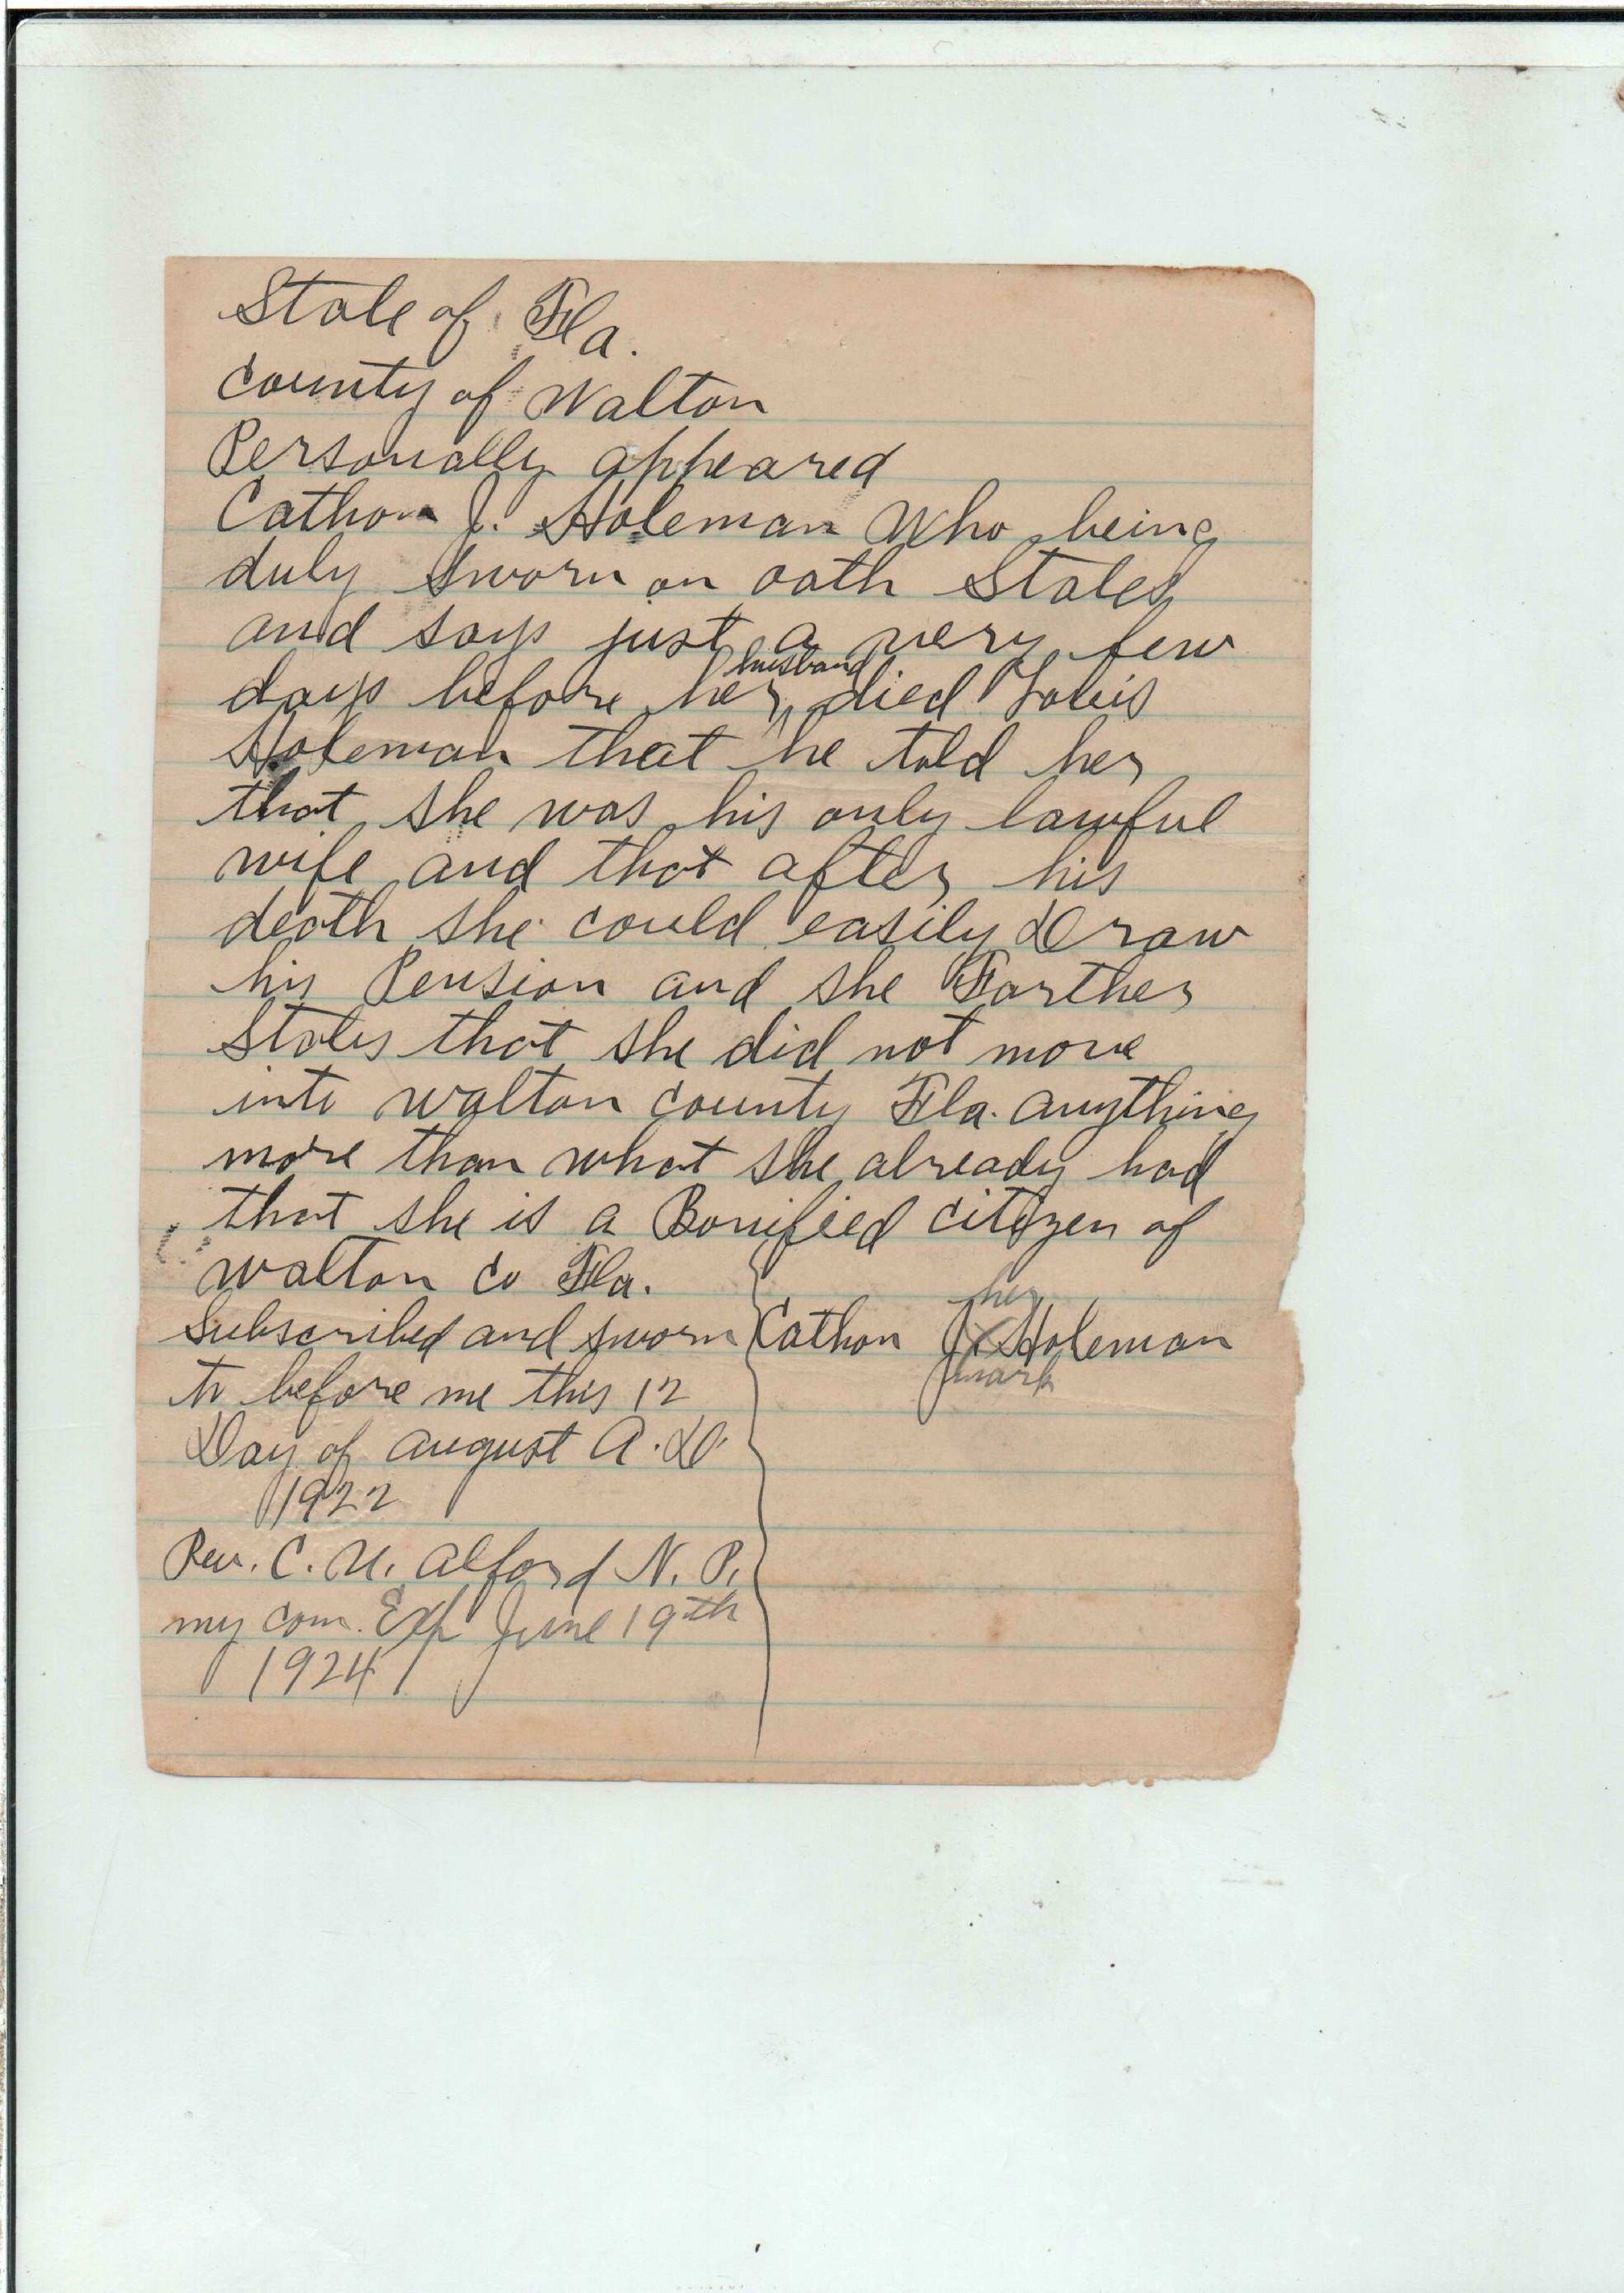 State of Fla.
County of Walton
Personally appeared
Cathon J. Holeman Who being
duly sworn on oath States
and says just a very few
days before her husband died Louis
Holeman that he told her
that she was his only lawful
wife and that after his
death she could easily Draw
his Pension and she Farther
States that she did not move
into Walton County Fla. anything
more than what she already had
that she is a Bonified citizen of
Walton Co Fla.
Subscribed and sworn
to before me this 12
Day of August A.D.
1922
Rev. C. U. Alford N. P.
my com. Exp June 19th
1924
her
Cathon J. X Holeman
mark